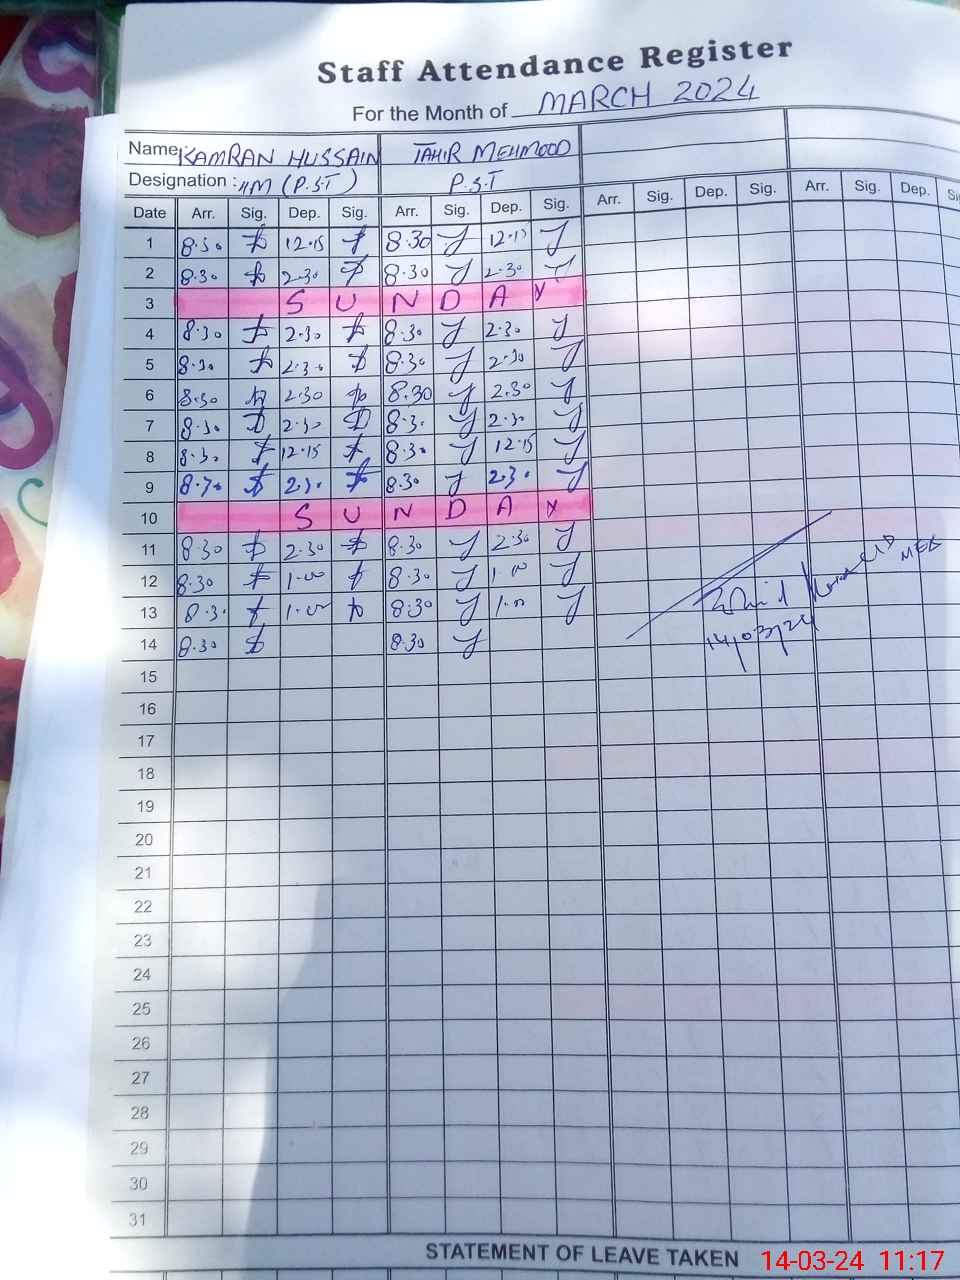 Staff Attendance Register
For the Month of MARCH 2024
Name: KAMRAN HUSSAIN TAHIR MEHMOOD
Designation: HM (P.S.T) P.S.T
Date Arr. Sig. Dep. Sig. Arr. Sig. Dep. Sig. Arr. Sig. Dep. Sig. Arr. Sig. Dep.
1 8.30 12.15 8.30 12.15
2 8.30 2.30 8.30 2.30
3 SUNDAY
4 8.30 2.30 8.30 2.30
5 8.30 2.30 8.30 2.30
6 8.30 2.30 8.30 2.30
7 8.30 2.30 8.30 2.30
8 8.30 12.15 8.30 12.15
9 8.30 2.30 8.30 2.30
10 SUNDAY
11 8.30 2.30 8.30 2.30
12 8.30 1.00 8.30 1.00
13 8.30 1.00 8.30 1.00
14 8.30 8.30
14/03/24
15
16
17
18
19
20
21
22
23
24
25
26
27
28
29
30
31
STATEMENT OF LEAVE TAKEN
14-03-24 11:17